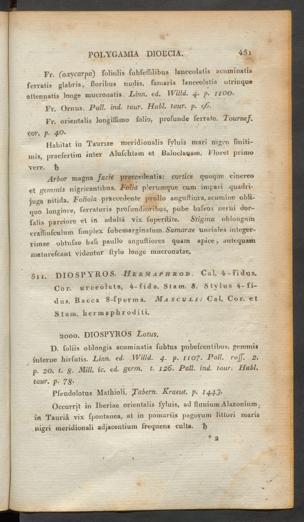 POLYGAMIA DIOECIA. 451
Fr. (oxycarpa) foliolis subfessilibus lanceolatis acuminatis
ferratis glabris, floribus nudis, samaris lanceolatis utrinque
attenuatis longe mucronatis. Linn. ed. Willd. 4. p. 1100.
Fr. Ornus. Pall. ind. taur. Habl. taur. p. 96.
Fr. orientalis longissimo folio, profunde serrato. Tournef.
cor. p. 40.
Habitat in Tauriae meridionalis sylvis mari nigro finiti-
mis, praesertim inter Aluschtam et Baloclavam. Floret primo
vere. ♄
Arbor magna facie praecedentis: cortice quoque cinereo
et gemmis nigricantibus. Folia plerumque cum impari quadri-
juga nitida. Foliola praecedente paullo angustiora, acumine obli-
quo longiore, serraturis profundioribus, pube baseos nervi dor-
salis parciore et in adultâ vix superstite. Stigma oblongum
crassiusculum simplex subemarginatum. Samarae unciales integer-
rimae obtusae basi paullo angustiores quam apice, antequam
maturescant videntur stylo longe mucronatae.
511. DIOSPYROS. HERMAPHROD. Cal. 4-fidus.
Cor. urceolata, 4-fida. Stam. 8. Stylus 4-fi-
dus. Bacca 8-sperma. MASCULI: Cal. Cor. et
Stam. hermaphroditi.
2000. DIOSPYROS Lotus.
D. foliis oblongis acuminatis subtus pubescentibus, gemmis
interne hirsutis. Linn. ed. Willd. 4. p. 1107. Pall. ross. 2.
p. 20. t. 8. Mill. ic. ed. germ. t. 126. Pall. ind. taur. Habl.
taur. p. 78.
Pseudolotus Mathioli, Tabern. Kraeut. p. 1443.
Occurrit in Iberiae orientalis sylvis, ad fluvium Alazonium,
in Tauriâ vix spontanea, at in pomariis pagorum littori maris
nigri meridionali adjacentium frequens culta. ♄
* 2